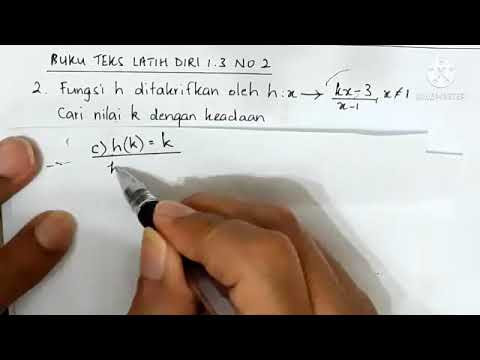 BUKU TEKS LATIH DIRI 1.3 NO 2
2. Fungsi h ditakrifkan oleh h : x → kx-3 / x-1, x ≠ 1
Cari nilai k dengan keadaan
c) h(k) = k